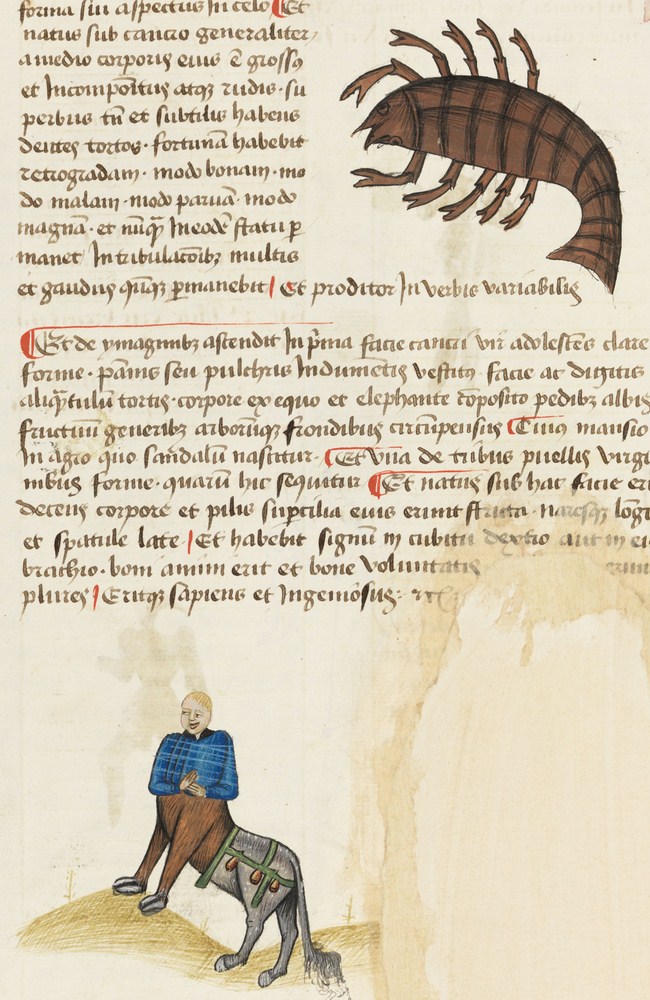 forma sui aspectus in celo Et
natus sub cancro generaliter
a medio corporis eius ē grossꝰ
et Incompoītus atqꝫ rudis · su
perbus tn̄ et subtilis habens
dentes tortos · fortunā habebit
retrogradam · modo bonam · mo
do malam · modo paruā · modo
magnam · et nūqͣ In eodē statu ꝑ
manet In tribulac̄oibꝫ multis
et gaudijs ꝑmanebit Et proditor In verbis variabilis
Et de ymaginibꝫ ascendit In p̄ma facie cancri vir adolesc̄es clare
forme · pānis seu pulchris Indumētis vestitꝰ · facie ac digitis
aliqͣntulū tortis · corpore ex equo et elephante cōposito pedibꝫ albis
fructuū generibꝫ arborūqꝫ frondibus circūpensis Cuiꝰ mansio
In agro quo sandalū nascitur · Et vna de tribus puellis virgi
nibus forme · quarū hic sequitur Et natus sub hac facie eri
decens corpore et pilis suꝑcilia eius erunt stricta · longꝰ
et spatule late · Et habebit signū in cubitu dextro aut in ei
brachio · boni animi erit et bone voluntatis erunt
plures Eritqꝫ sapiens et Ingeniosus